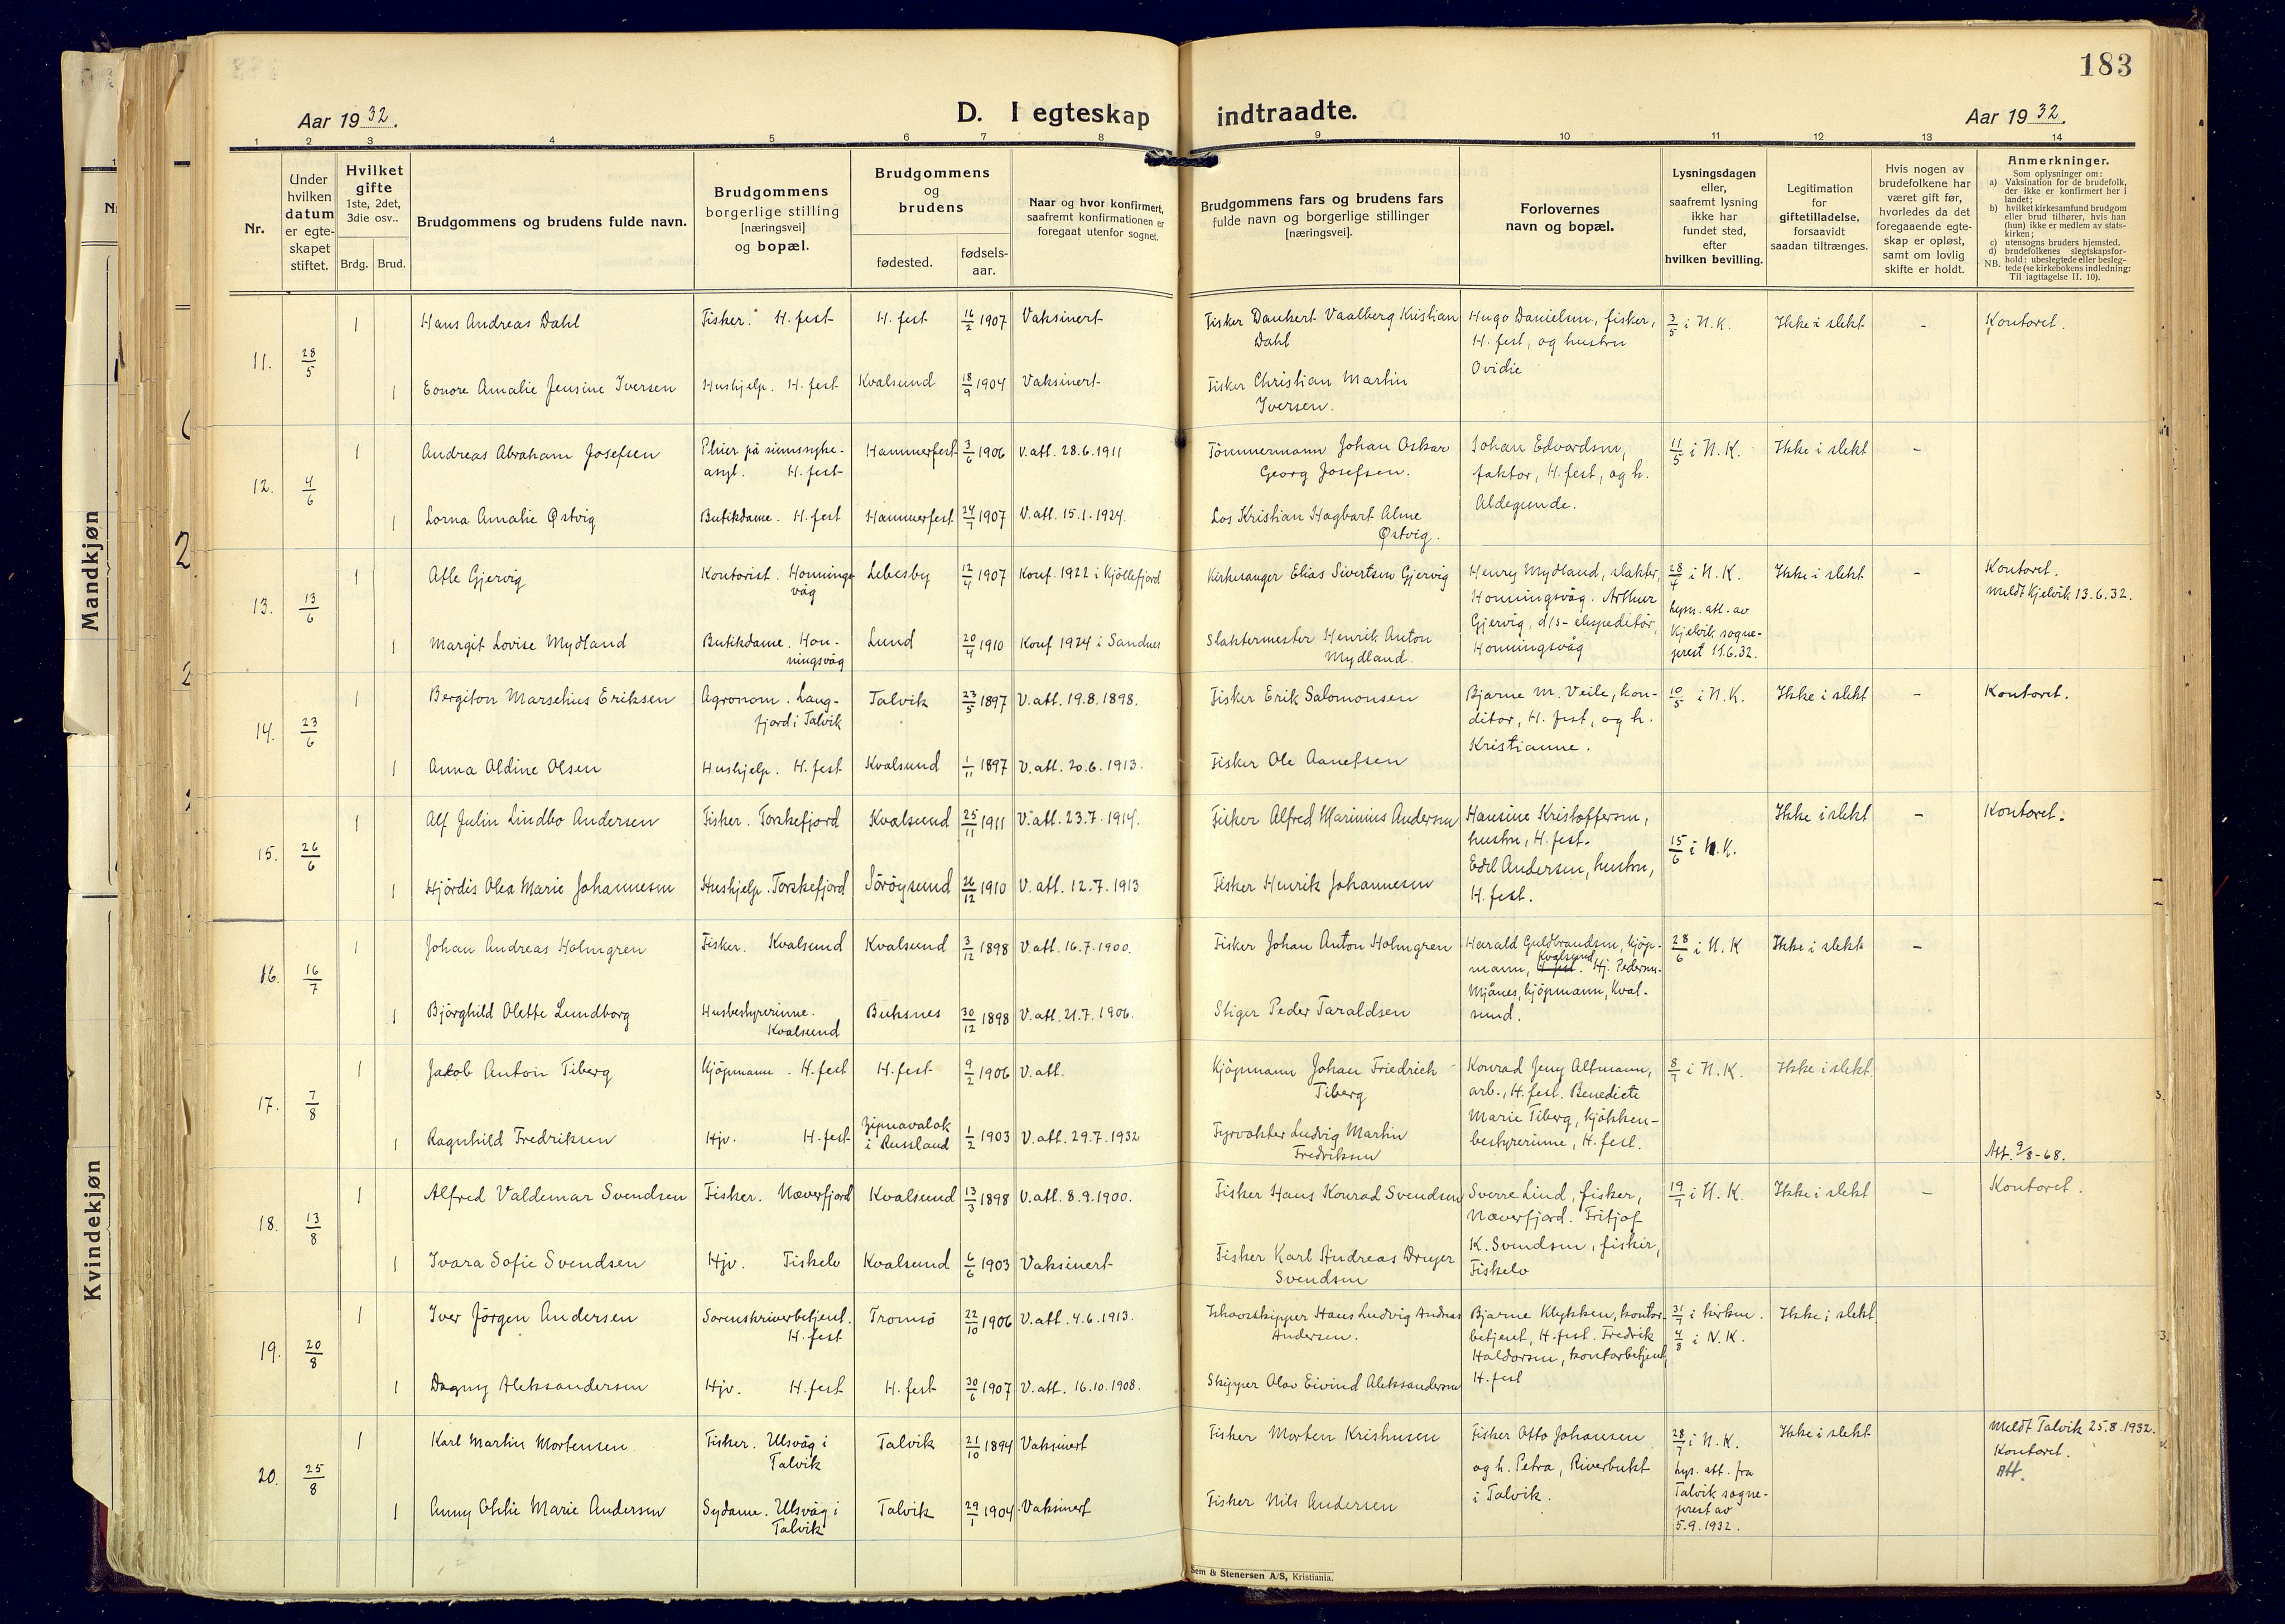 183
Aar 1932.
D. I egteskap indtraadte.
Aar 1932.
1 2 3 4 5 6 7 8 9 10 11 12 13 14
Nr.
Under
hvilken
datum
er egte-
skapet
stiftet.
Hvilket
gifte
1ste, 2det,
3die osv..
Brdg. Brud.
Brudgommens og brudens fulde navn.
Brudgommens
borgerlige stilling
[næringsvei]
og bopæl.
Brudgommens
og
brudens
fødested.
fødsels-
aar.
Naar og hvor konfirmert,
saafremt konfirmationen er
foregaat utenfor sognet.
Brudgommens fars og brudens fars
fulde navn og borgerlige stillinger
[næringsvei].
Forlovernes
navn og bopæl.
Lysningsdagen
eller,
saafremt lysning
ikke har
fundet sted,
efter
hvilken bevilling.
Legitimation
for
giftetilladelse,
forsaavidt
saadan tiltrænges.
Hvis nogen av
brudefolkene har
været gift før,
hvorledes da det
foregaaende egte-
skap er opløst,
samt om lovlig
skifte er holdt.
Anmerkninger.
Som oplysninger om:
a) Vaksination for de brudefolk,
der ikke er konfirmert her i
landet;
b) hvilket kirkesamfund brudgom
eller brud tilhører, hvis han
(hun) ikke er medlem av stats-
kirken;
c) utensogns bruders hjemsted.
d) brudefolkenes slegtskapsfor-
hold: ubeslegtede eller besleg-
NB. tede (se kirkebokens indledning:
Til iagttagelse II. 10).
11. 28/5
1 Hans Andreas Dahl
Fisker. H. fest
H. fest 16/2 1907 Vaksinert
Fisker Dankert Vaalberg Kristian
Dahl
Hugo Danielsen, fisker,
H. fest, og hustru
Ovidie
3/5 i N.K.
Ikke i slekt
-
Kontoret.
1 Eonore Amalie Jensine Iversen
Hushjelp. H. fest
Kvalsund 18/9 1904 Vaksinert
Fisker Christian Martin
Iversen.
12. 4/6
1 Andreas Abraham Josefsen
Pleier på sinnssyke-
asyl. H. fest
Hammerfest 3/6 1906 V. att. 28.6.1911
Tömmermann Johan Oskar
Georg Josefsen.
Johan Edvardsen,
faktor, H. fest, og h.
Aldegunde.
11/5 i N.K.
Ikke i slekt
-
1 Lorna Amalie Østvig
Butikdame. H. fest
Hammerfest 24/7 1907 V. att. 15.1.1924.
Los Kristian Hagbart Alme
Østvig.
13. 13/6
1 Atle Gjervig
Kontorist. Honnings-
våg
Lebesby 12/4 1907 Konf. 1922 i Kjöllefjord
Kirkesanger Elias Sivertsen Gjervig
Henry Mydland, slakter,
Honningsvåg. Arthur
Gjervig, d/s-ekspeditör,
Honningsvåg
28/4 i N.K.
lysn. att. av
Kjelvik sogne-
prest 11.6.32.
Ikke i slekt
-
Kontoret.
Meldt Kjelvik 13.6.32.
1 Margit Lovise Mydland
Butikdame. Hon-
ningsvåg
Lund 20/4 1910 Konf 1924 i Sandnes
Slaktermester Henrik Anton
Mydland.
14. 23/6
1 Bergiton Marselius Eriksen
Agronom. Lang-
fjord i Talvik
Talvik 23/5 1897 V. att. 19.8.1898.
Fisker Erik Salomonsen
Bjarne M. Veile, kon-
ditor, H. fest, og h.
Kristianne.
10/5 i N.K.
Ikke i slekt
-
Kontoret.
1 Anna Aldine Olsen
Hushjelp. H. fest
Kvalsund 1/11 1897 V. att. 20.6.1913.
Fisker Ole Aanefsen
15. 26/6
1 Alf Julin Lindbo Andersen
Fisker. Torskefjord
Kvalsund 25/11 1911 V. att. 23.7.1914.
Fisker Alfred Marinius Andersen
Hansine Kristoffersen,
hustru, H. fest.
Edel Andersen, hustru,
H. fest.
15/6 i N.K.
Ikke i slekt
-
Kontoret.
1 Hjördis Olea Marie Johannesen
Hushjelp. Torskefjord
Söröysund 26/12 1910 V. att. 12.7.1913
Fisker Henrik Johannesen
16. 16/7
1 Johan Andreas Holmgren
Fisker. Kvalsund
Kvalsund 3/12 1898 V. att. 16.7.1900.
Fisker Johan Anton Holmgren
Harald Guldbrandsen, kjöp-
Kvalsund
mann, H. fest. Hj. Pedersen-
Mjånes, kjöpmann, Kval-
sund.
28/6 i N.K
Ikke i slekt
-
1 Björghild Olette Lundborg
Husbestyrerinne.
Kvalsund
Buksnes 30/12 1898 V. att. 21.7.1906.
Stiger Peder Taraldsen
17. 7/8
1 Jakob Anton Tiberg
Kjöpmann. H. fest
H. fest 9/2 1906 V. att.
Kjöpmann Johan Friedrich
Tiberg
Konrad Jeny Altmann,
arb., H. fest. Benedicte
Marie Tiberg, kjökken-
bestyrerinne, H. fest.
8/7 i N.K.
Ikke i slekt.
1 Ragnhild Fredriksen
Hjv. H. fest
Zipnavalok
i Russland 1/2 1903 V. att. 29.7.1932
Fyrvokter Ludvig Martin
Fredriksen
Att. 9/8-68.
18. 13/8
1 Alfred Valdemar Svendsen
Fisker. Næverfjord
Kvalsund 13/3 1898 V. att. 8.9.1900.
Fisker Hans Konrad Svendsen
Sverre Lind, fisker,
Næverfjord. Fritjof
K. Svendsen, fisker,
Fiskelv
19/7 i N.K.
Ikke i slekt
-
Kontoret.
1 Ivara Sofie Svendsen
Hjv. Fiskelv
Kvalsund 6/6 1903 Vaksinert
Fisker Karl Andreas Dreyer
Svendsen
19. 20/8
1 Iver Jörgen Andersen
Sorenskriverbetjent.
H. fest
Tromsö 22/10 1906 V. att. 4.6.1913.
Ishavsskipper Hans Ludvig Andreas
Andersen.
Bjarne Klykken, kontor-
betjent, H. fest. Fredrik
Haldorsen, kontorbetjent,
H. fest
31/7 i kirken.
4/8 i N.K.
Ikke i slekt
1 Dagny Aleksandersen
Hjv. H. fest
H. fest 30/6 1907 V. att. 16.10.1908.
Skipper Olav Eivind Aleksandersen
20. 25/8
1 Karl Martin Mortensen
Fisker. Ulsvåg i
Talvik
Talvik 21/10 1894 Vaksinert
Fisker Morten Kristensen
Fisker Otto Johansen
og h. Petra, Riverbukt
i Talvik.
28/7 i N.K.
lys. att. fra
Talvik sogne-
prest av
5.9.1932.
Ikke i slekt
Meldt Talvik 25.8.1932.
Kontoret.
Att.
1 Anny Otelie Marie Andersen
Sydame. Ulsvåg i
Talvik
Talvik 29/1 1904 Vaksinert
Fisker Nils Andersen
Sem & Stenersen A/S, Kristiania.
Mandkjøn
Kvindekjøn